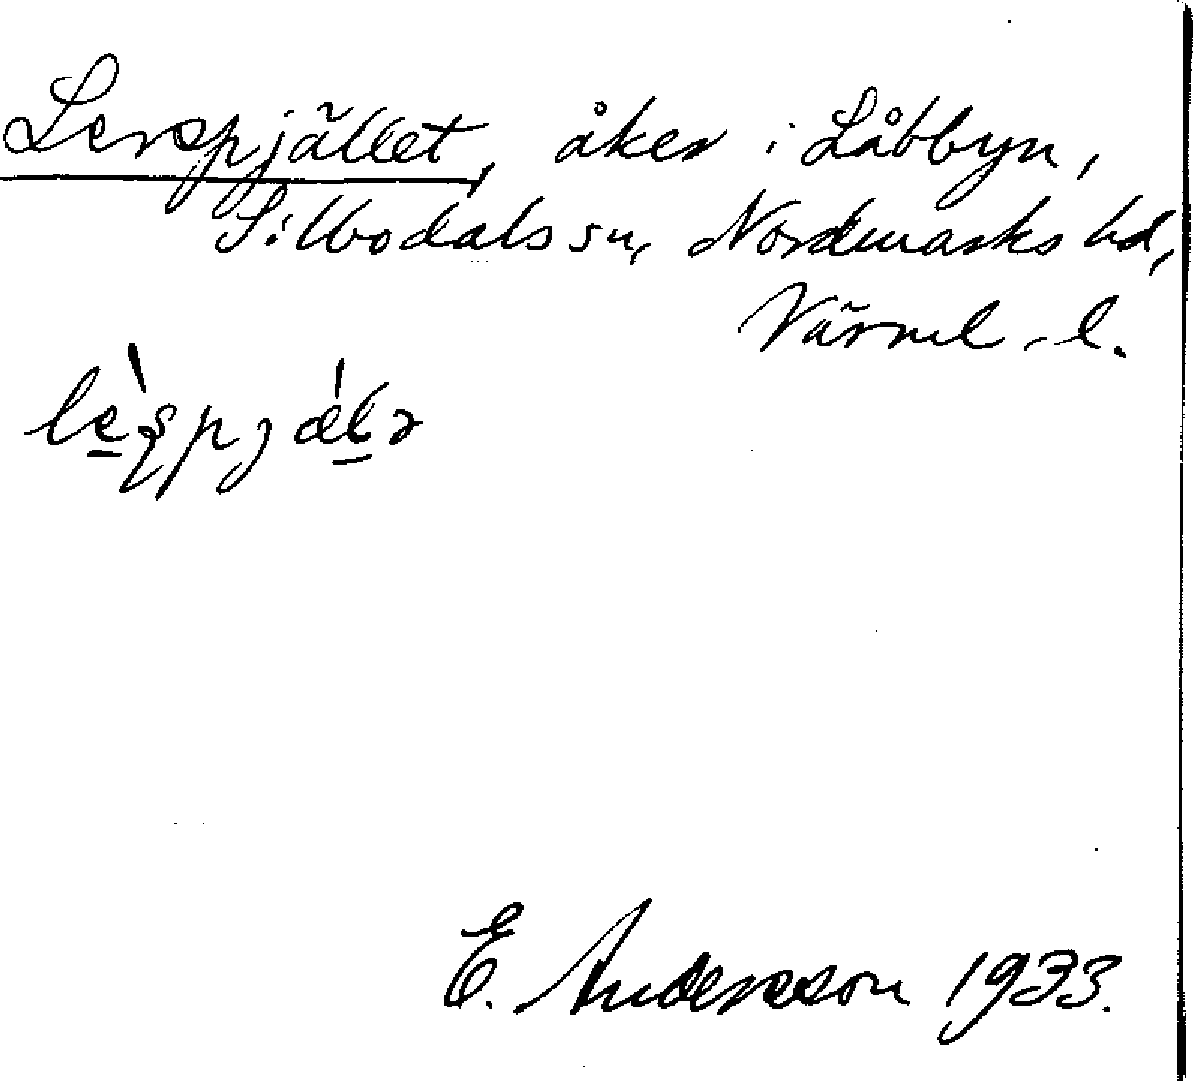 Lerspjället, åker i Låbbyn,
Silbodals sn, Nordmarks hd,
Värml. l.
E. Andersson 1933.